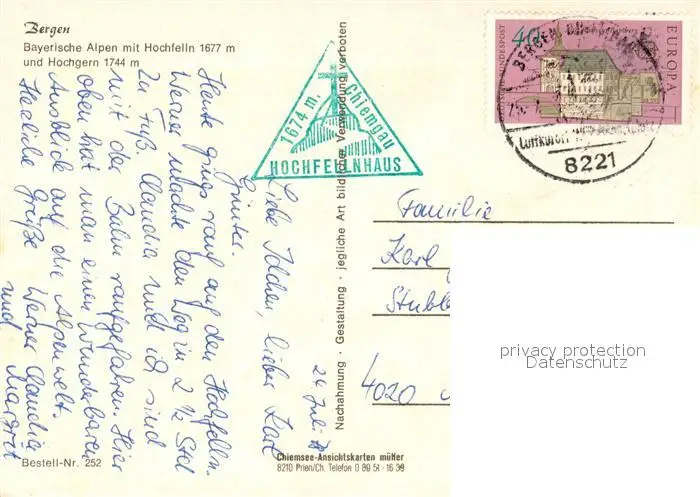 Bergen
Bayerische Alpen mit Hochfelln 1677 m
und Hochgern 1744 m
1674 m. Chiemgau
HOCHFELLNHAUS
DEUTSCHE BUNDESPOST
40
EUROPA
BERGEN
Luftkurort
8221
Liebe Idchen, lieber Karl
Günter.
Heute gings rauf auf den Hochfelln.
Werner machte den Weg in 2 ½ Std
zu Fuß. Claudia und ich sind
mit der Bahn raufgefahren. Hier
oben hat man einen wunderbaren
Ausblick auf die Alpenwelt.
Herzliche Grüße Werner Claudia
und Margret
Nachahmung · Gestaltung · jegliche Art bildlicher Verwendung verboten
Familie
Karl
4020
privacy protection
Datenschutz
Bestell-Nr. 252
Chiemsee-Ansichtskarten müller
8210 Prien/Ch. Telefon 0 80 51 - 16 39